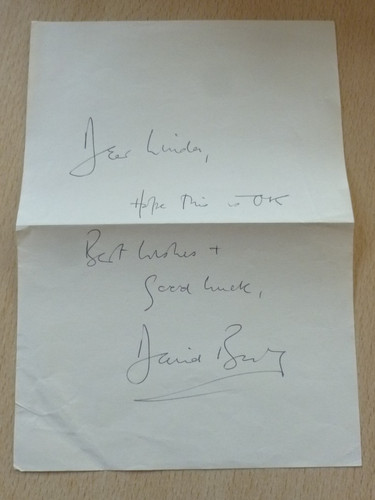 Dear Linda,
Hope this is OK
Best wishes +
Good luck,
David